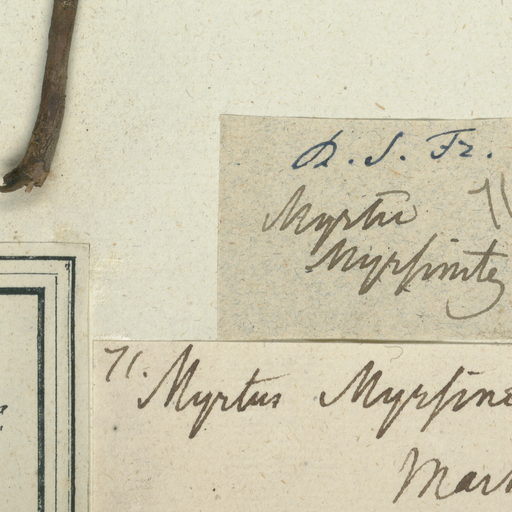 D. S. Fr.
Myrtus 71
Myrsinites
71. Myrtus Myrsine
Mar